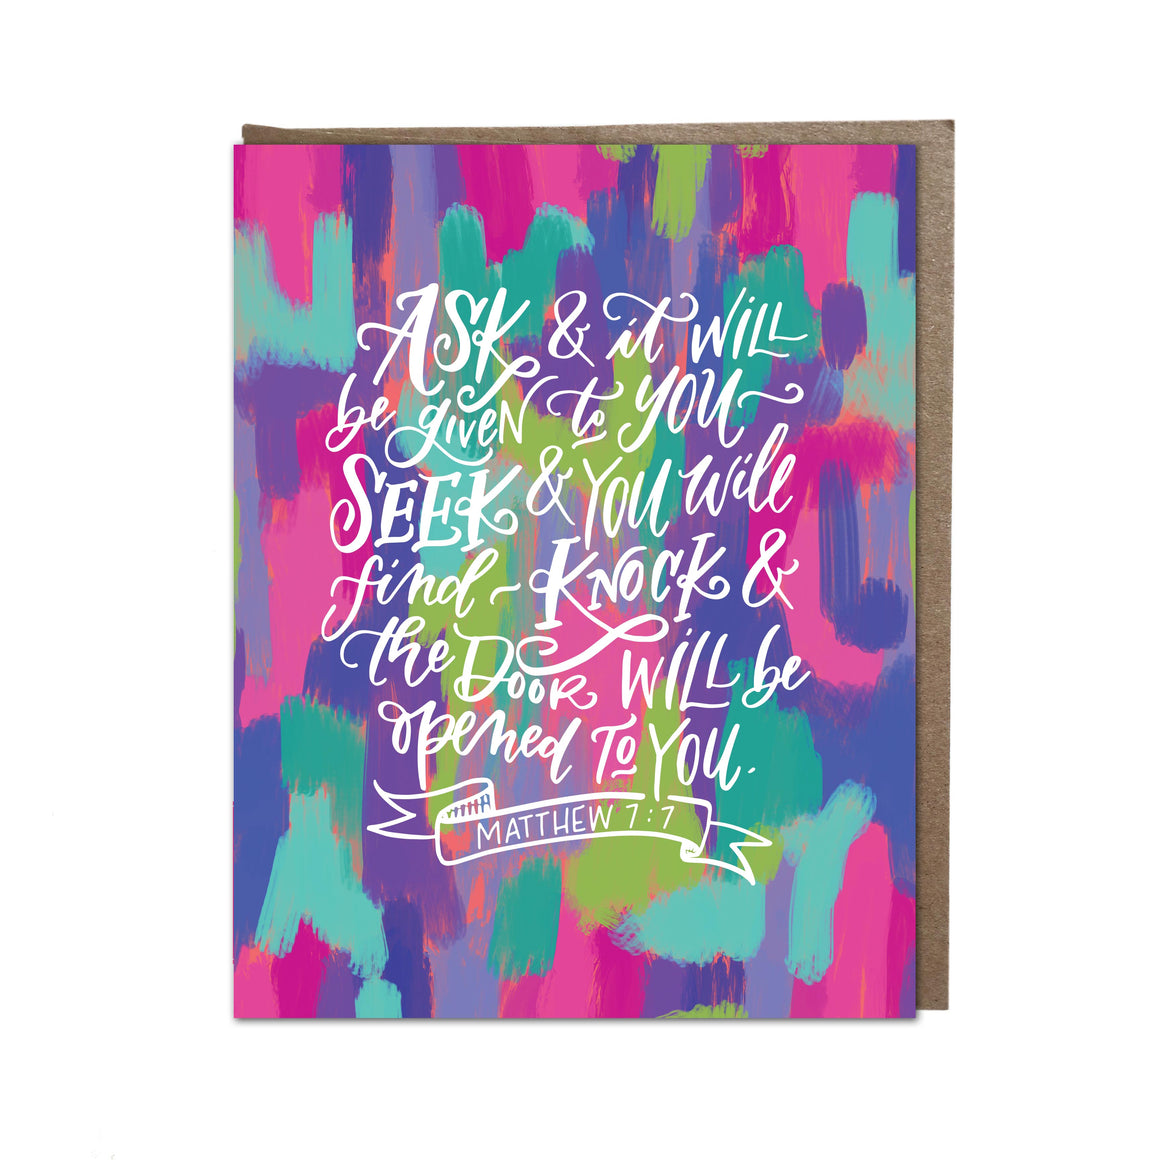 ASK & it WILL
be given to YOU~
SEEK & YOU will
find ~ KNOCK &
the DOOR WILL be
opened To YOU.
MATTHEW 7:7